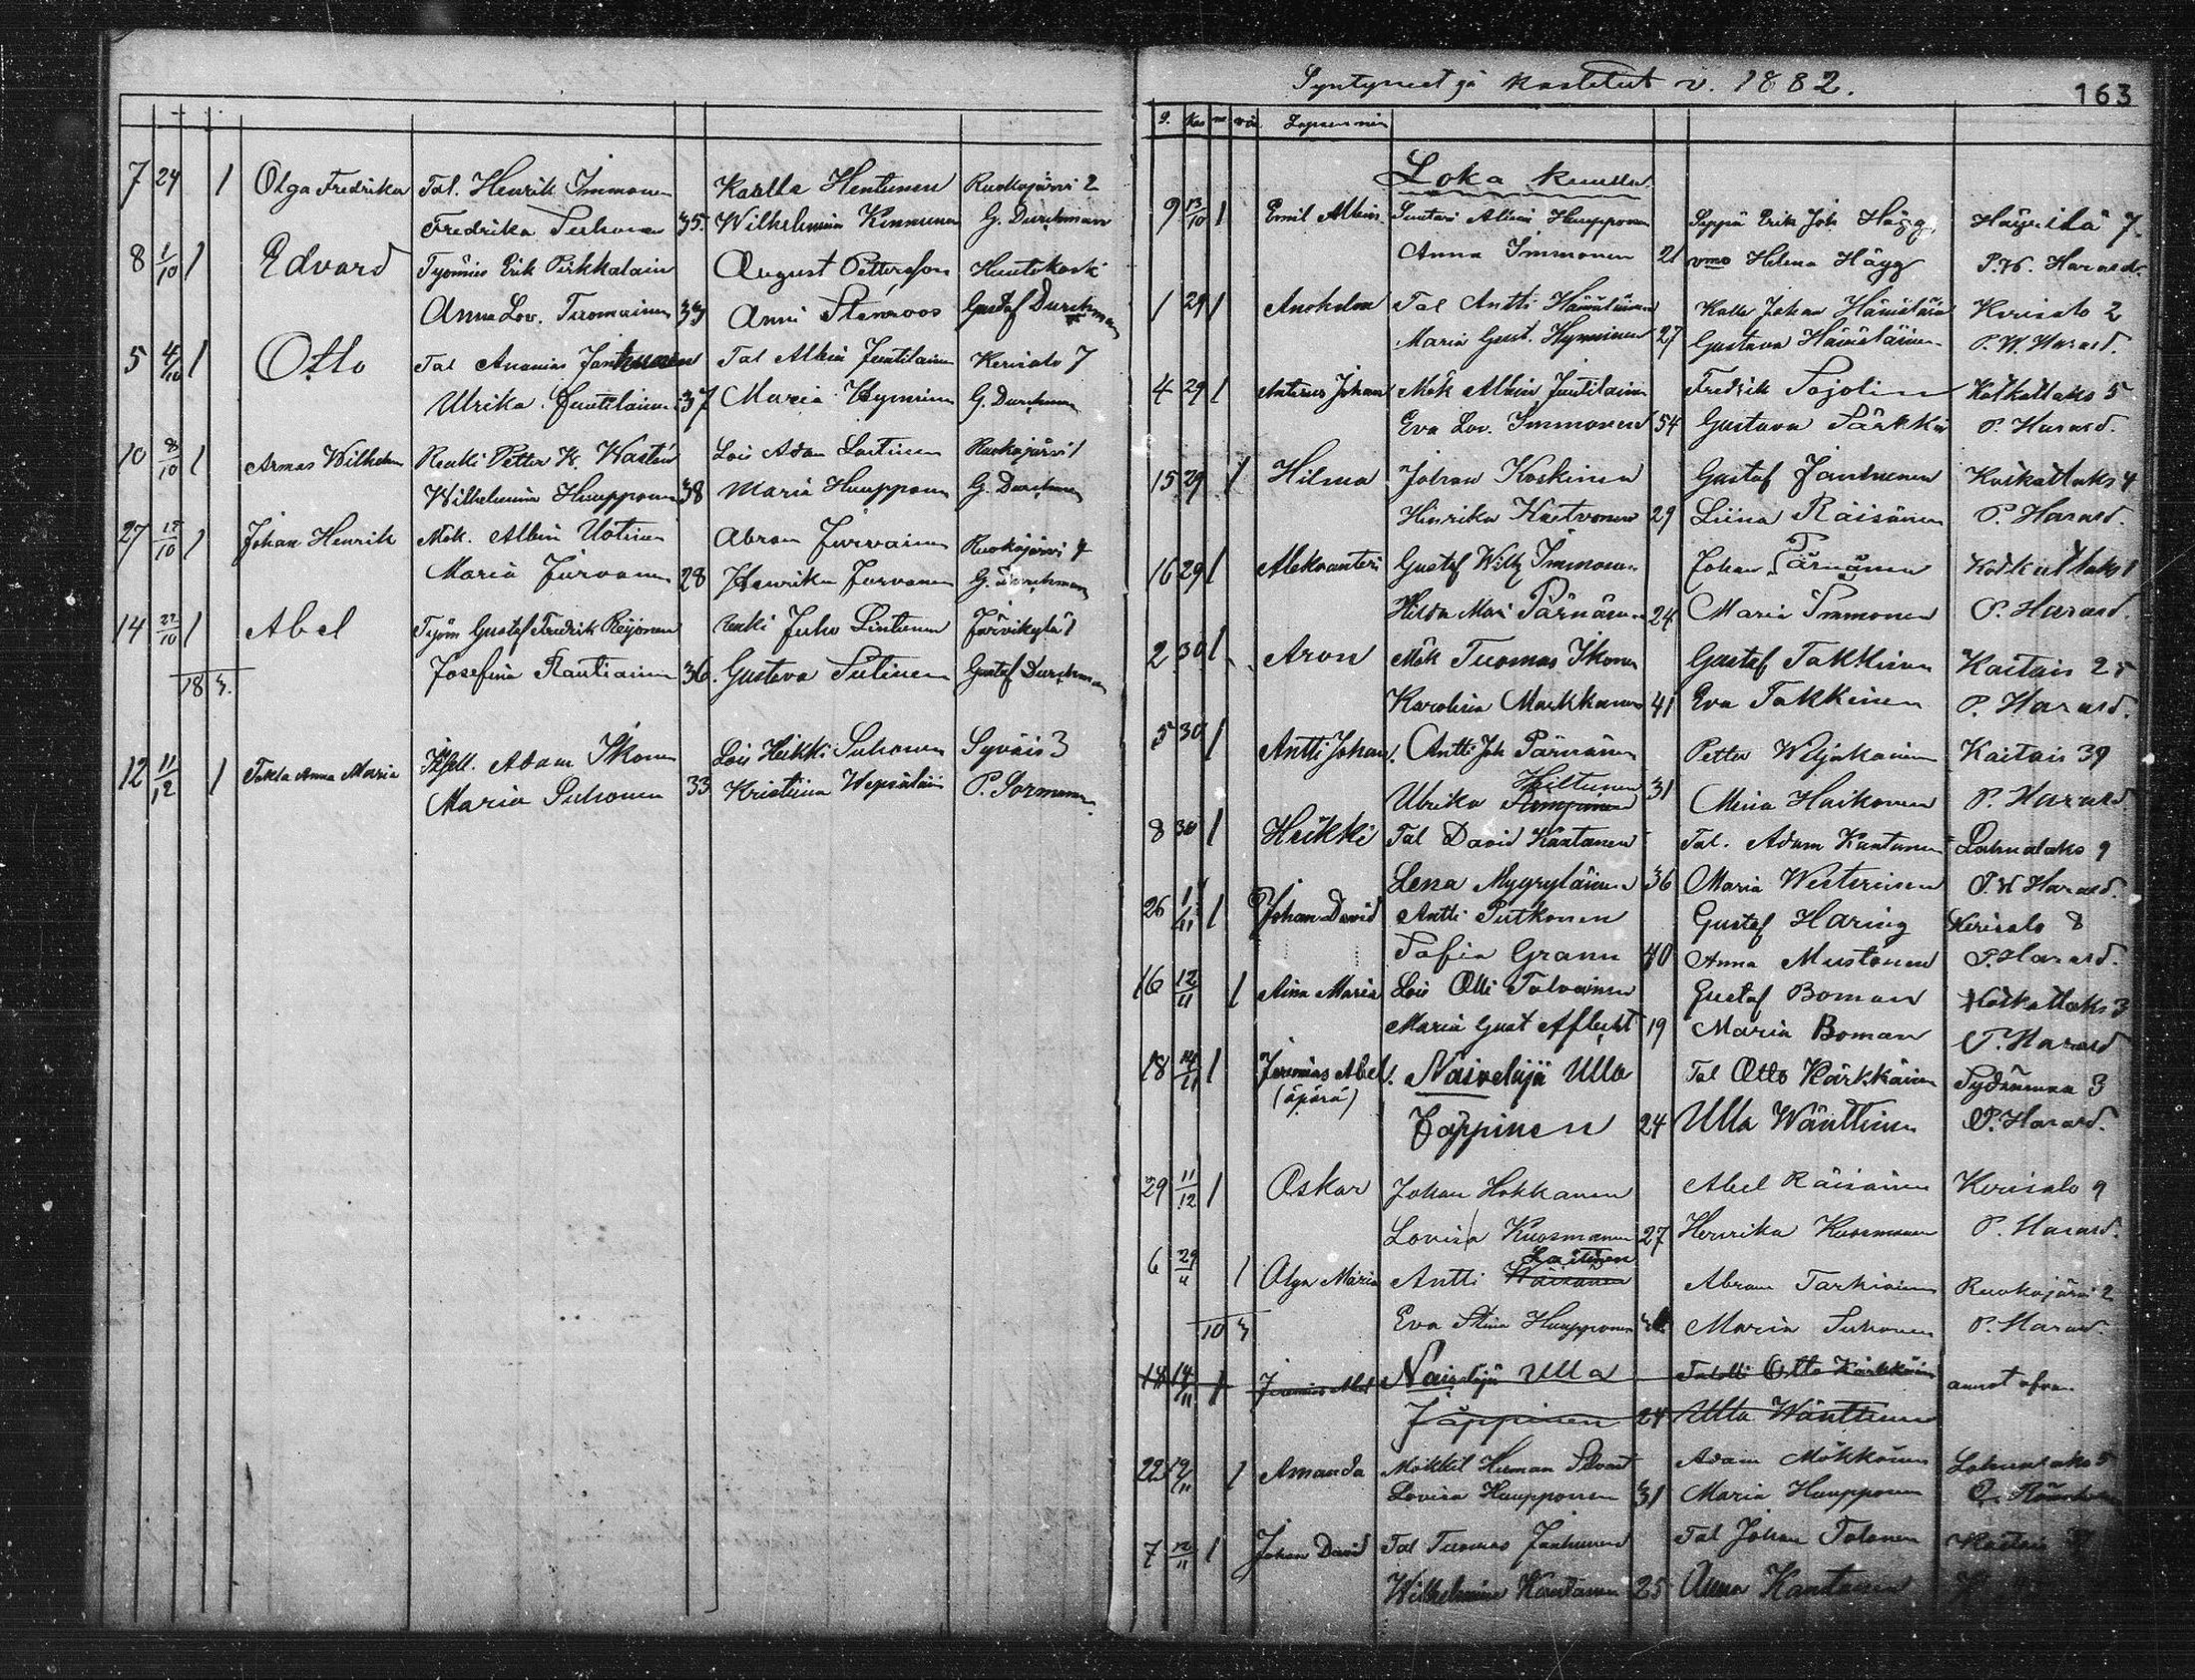 7 24 1 Olga Fredrika Tal. Henrik Immonen Kaalle Hentunen Ruokojärvi 2
Fredrika Suhonen 35. Wilhelmina Kinnunen G. Durchman
8 1/10 1 Edvard Työmies Erik Pirkkalain August Pettersson Huutokoski
Anna Lov. Tiromainen 33 Anni Stenroos Gustaf Durchman
5 4/10 1 Otto Tal Ananias Janhunen Tal Albin Juutilainen Kerisalo 7
Ulrika Juutilainen 37 Maria Hynninen G. Durchman
10 8/10 1 Armas Wilhelm Renki Petter W. Wastén Lois Adam Laitinen Ruokojärvi 1
Wilhelmina Huupponen 38 Maria Huupponen G. Durchman
27 15/10 1 Johan Henrik Mök. Albin Uotinen Abram Jurvainen Ruokojärvi 4
Maria Jurvanen 28 Henrika Jurvanen G. Durchman
14 22/10 1 Abel Työm Gustaf Fredrik Reijonen Renki Juho Lintunen Järvikylä 1
Josefina Rautiainen 36. Gustava Sutinen Gustaf Durchman
18 3.
12 11/12 1 Tekla Anna Maria Itsell. Adam Ikonen Lois Heikki Suhonen Syväis 3
Maria Suhonen 33 Kristiina Wepsäläin P. Pormanen
Syntyneet ja kastetut v. 1882. 163
S. Kas m vai Lapsen nim
Loka kuulla
9 13/10 1 Emil Albin Suutari Albin Huupponen Seppä Erik Joh Hägg Häyrilä 7.
Anna Immonen 21 vmo Helena Hägg P. W. Harald.
1 29 1 Tal Antti Hämäläinen Kalle Johan Hämäläin Kerisalo 2
Maria Gust. Hynninen 27 Gustava Hämäläinen P. W. Harald.
4 29 1 Anterus Johan Mök Albin Juutilainen Fredrik Sojolin Kotkatlaks 5
Eva Lov. Immonen 34 Gustava Särkkä P. Harald.
15 29 1 Hilma Johan Koskinen Gustaf Janhunen Koskatlaks 4
Hinrika Hartvonen 29 Liina Räisänen P. Harald.
16 29 1 Aleksanteri Gustaf Wilh Immonen Johan Pärnänen Kotkatlaks 1
Hilda Mari Pärnänen 24 Maria Immonen P. Harald.
2 30 1 Aron Mök Tuomas Ikonen Gustaf Takkinen Kaitais 25
Karolina Markkanen 41 Eva Takkinen P. Harald.
5 30 1 Antti Johan. Antti Joh Pärnänen Petter Weljakainen Kaitais 39
Hiltunen
Ulrika 31 Miina Haikonen P. Harald
8 30 1 Heikki Tal David Kantanen Tal. Adam Kantanen Lahnalaks 9
Lena Mygryläinen 36 Maria Westerinen P. W Harald.
26 1/11 1 Johan David Antti Putkonen Gustaf Haring Kerisalo 8
Sofia Grann 40 Anna Mustonen P. Harald.
16 12/11 1 Aina Maria Lois Olli Tolvainen Gustaf Boman Kotkatlaks 3
Maria Gust Afflecht 19 Maria Boman P. Harald
18 14/11 1 Jeremias Abel. Naiseläjä Ulla Tal Otto Kärkkäinen Sydänmaa 3
(äpärä)
Jäppinen 24 Ulla Wänttinen P. Harald.
29 11/12 1 Oskar Johan Hokkanen Abel Räisänen Kerisalo 9
Lovisa Kuosmanen 27 Henrika Kuosmanen P. Harald.
Laitinen
6 29/11 1 Olga Maria Antti Räisänen Abram Tarkiainen Ruokojärvi 2
Eva Stina Huupponen Maria Suhonen P. Harald.
10 3
18 14/11 1 Jeremias Abel Naiseläjä Ulla Talolli Otto Kärkkäin annot ofvan
Jäppinen 24 Ulla Wänttinen
22 19/11 1 Amanda Mökkil Herman Silvast Adam Mökkönen Lahnalaks 5
Lovisa Huupponen 31 Maria Huupponen
7 12/11 1 Johan David Tal Tuomas Janhunen Tal Johan Tolonen Kaitais
Wilhelmina Kantanen 25 Anna Kantanen